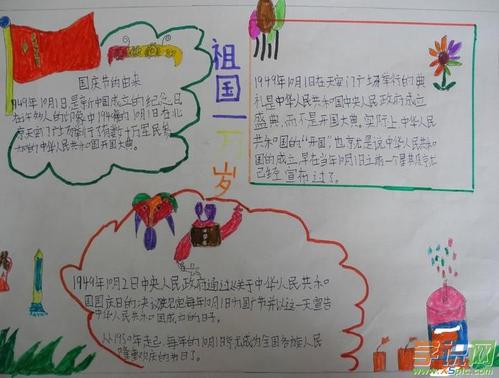 国庆节的由来
1949年10月1日是新中国成立的纪念日
在许多人的印象中1949年的10月1日在北
京天安门广场举行了有数十万军民参
加的中华人民共和国开国大典。
祖国万岁
1949年10月1日在天安门广场举行的典
礼是中华人民共和国中央人民政府成立
盛典,而不是开国大典。实际上中华人民
共和国的“开国”也就是说中华人民共和
国的成立,早在当年10月1日之前一个星期
已经宣布过了。
1949年10月2日中央人民政府通过《关于中华人民共和
国国庆日的决议》规定每年10月1日为国庆节并以这一天宣告
中华人民共和国成立的日子。
从1950年起,每年的10月1日就成为全国各族人民
隆重欢庆的节日了。
学识网
.XSpic.com